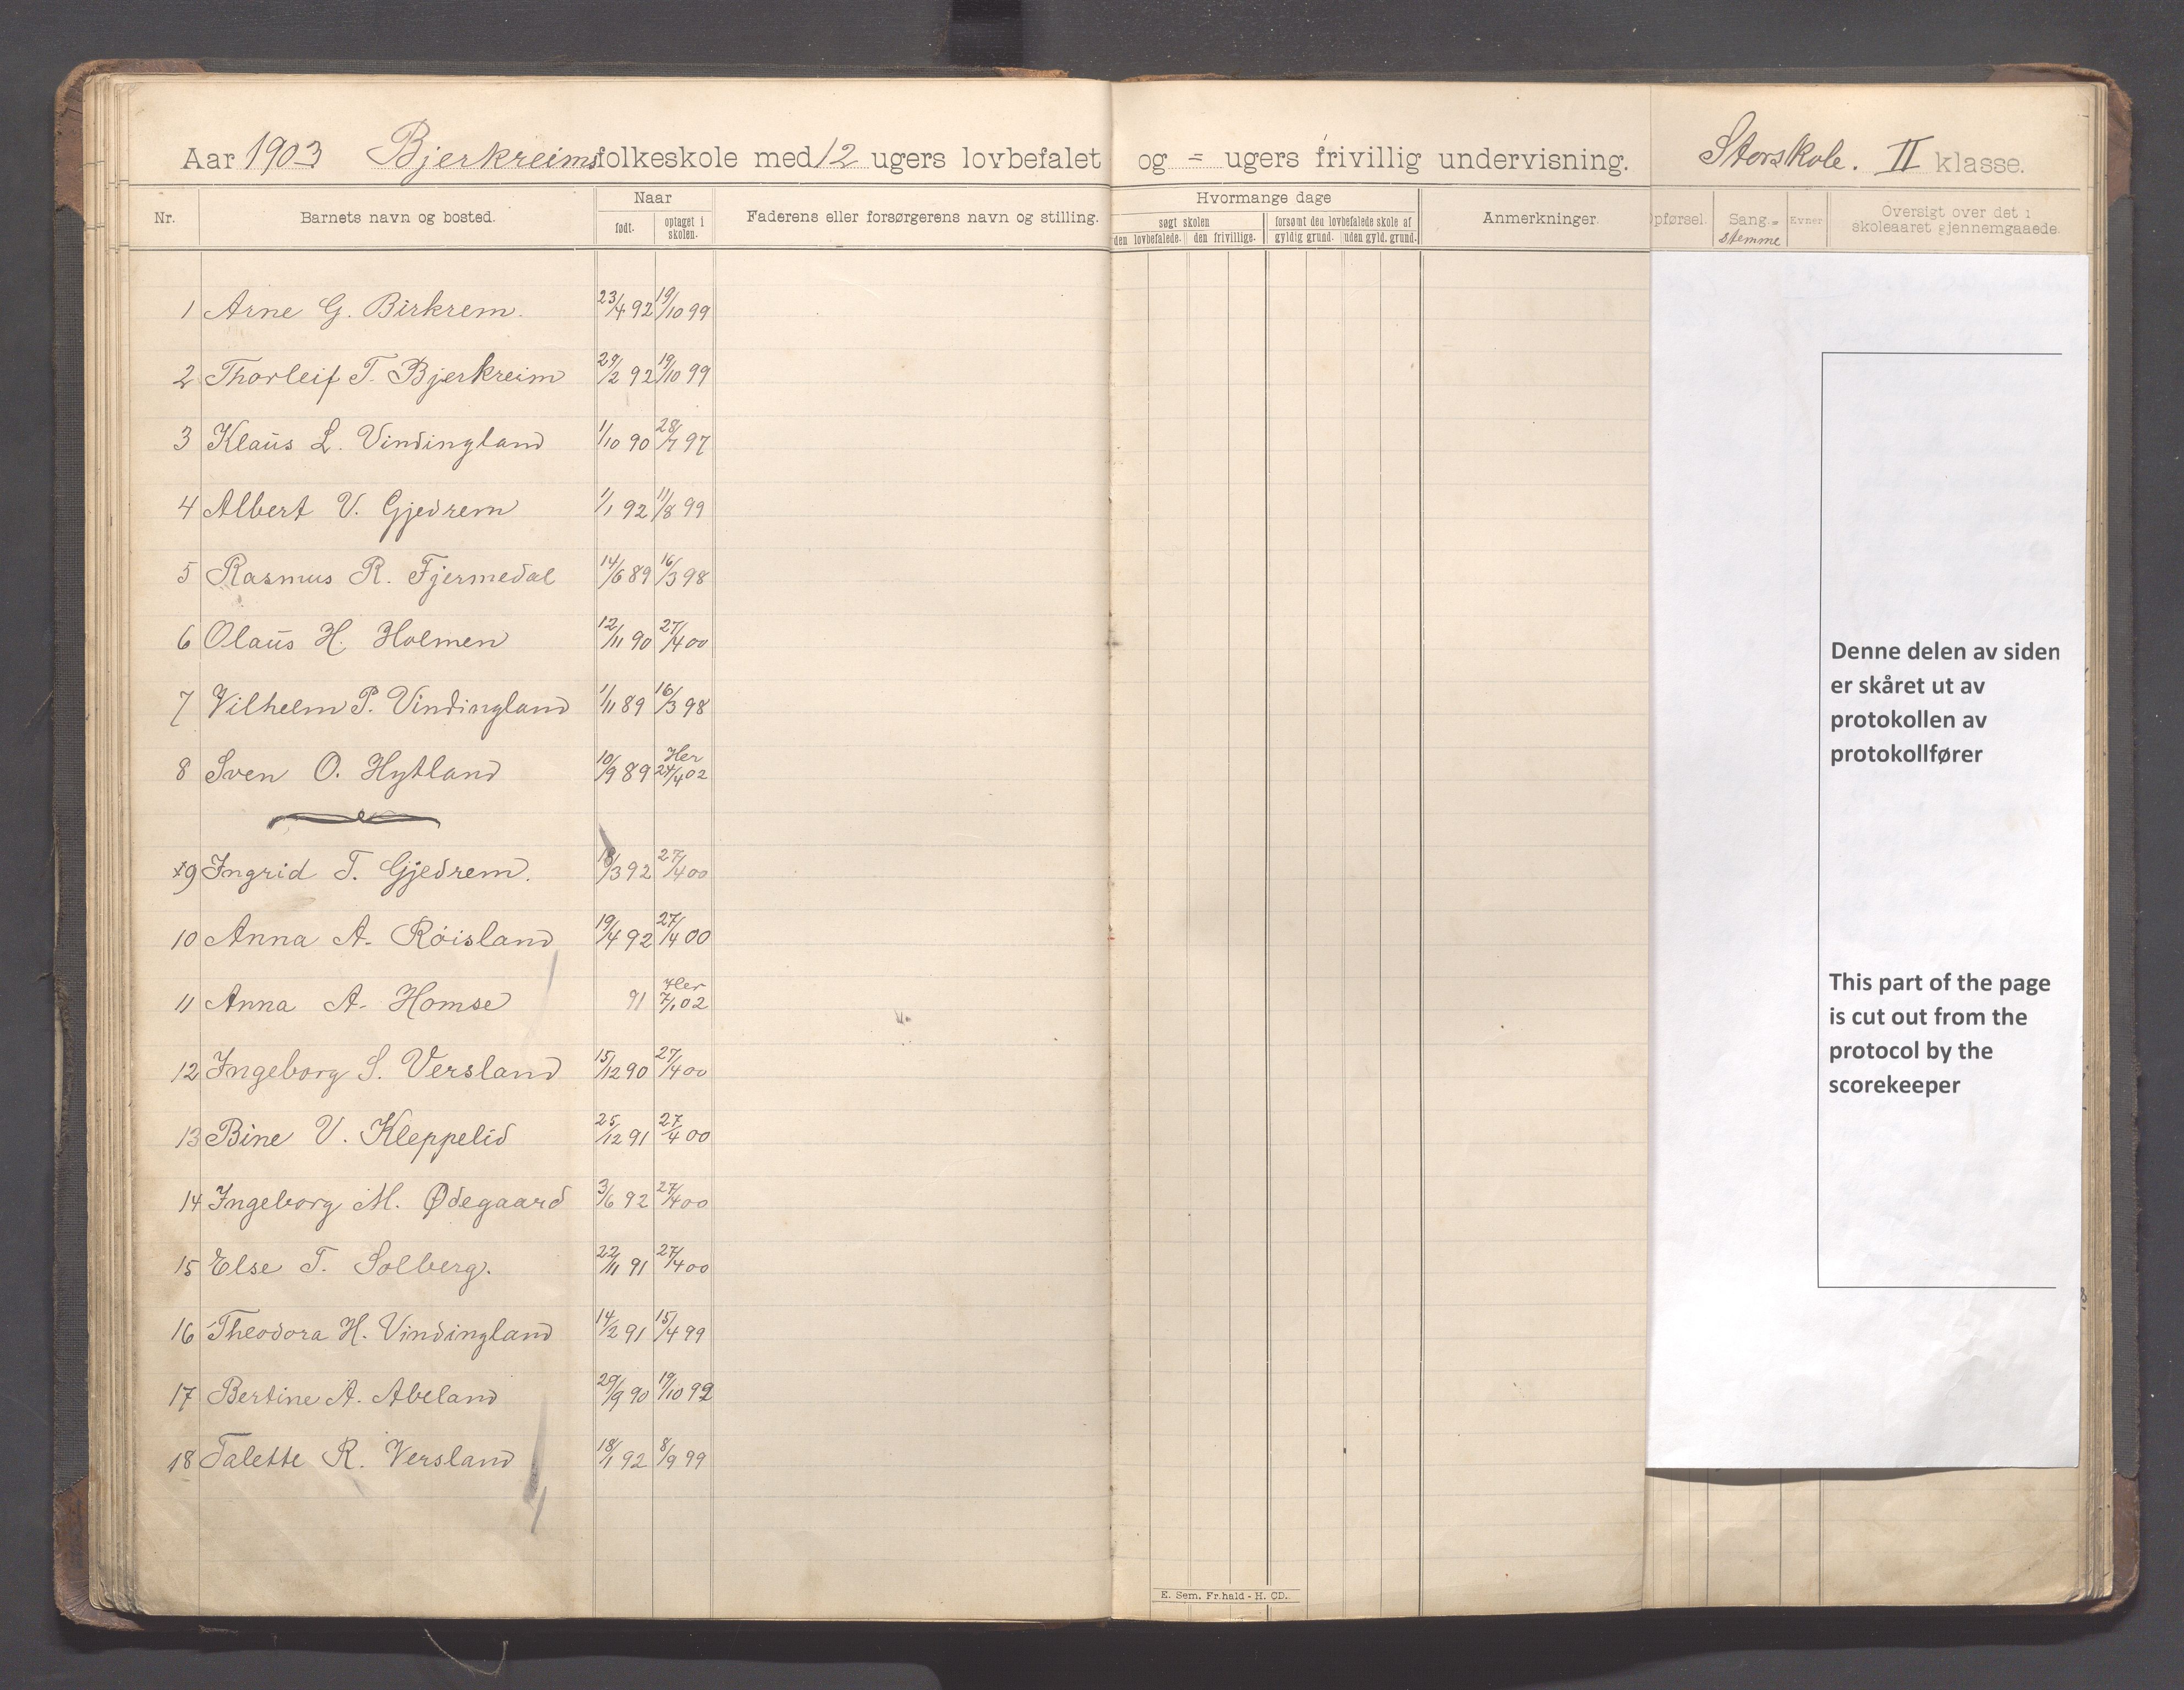 Aar 1903 Bjerkreims folkeskole med 12 ugers lovbefalet og = ugers frivillig undervisning. Storskole. II klasse.
Nr.
Barnets navn og bosted.
Naar
født.
optaget i skolen.
Faderens eller forsørgerens navn og stilling.
Hvormange dage
søgt skolen
forsømt den lovbefalede skole af
den lovbefalede.
den frivillige.
gyldig grund.
uden gyld. grund.
Anmerkninger.
Opførsel.
Sang.=
stemme
Evner
Oversigt over det i
skoleaaret gjennemgaaede.
1 Arne G. Birkrem. 23/4 92 19/10 99
2 Thorleif T. Bjerkreim 29/2 92 19/10 99
3 Klaus L. Vindingland 1/10 90 28/7 97
4 Albert V. Gjedrem 1/1 92 11/8 99
5 Rasmus R. Fjermedal 14/6 89 16/3 98
6 Olaus H. Holmen 12/11 90 27/4 00
7 Vilhelm P. Vindingland 1/11 89 16/3 98
8 Sven O. Hytland 10/9 89 Her 24/4 02
x9 Ingrid T. Gjedrem. 18/3 92 27/4 00
10 Anna A. Röisland 19/4 92 27/4 00
11 Anna A. Homse 91 Her 7/1 02
12 Ingeborg S. Versland 15/12 90 27/4 00
13 Bine V. Kleppelid 25/12 91 27/4 00
14 Ingeborg M. Ødegaard 3/6 92 27/4 00
15 Else T. Solberg. 22/11 91 27/4 00
16 Theodora H. Vindingland 14/2 91 15/4 99
17 Bertine A. Abeland 29/9 90 19/10 99
18 Talette R. Versland 18/1 92 8/9 99
Denne delen av siden
er skåret ut av
protokollen av
protokollfører
This part of the page
is cut out from the
protocol by the
scorekeeper
E. Sem, Fr.hald - H. CD.